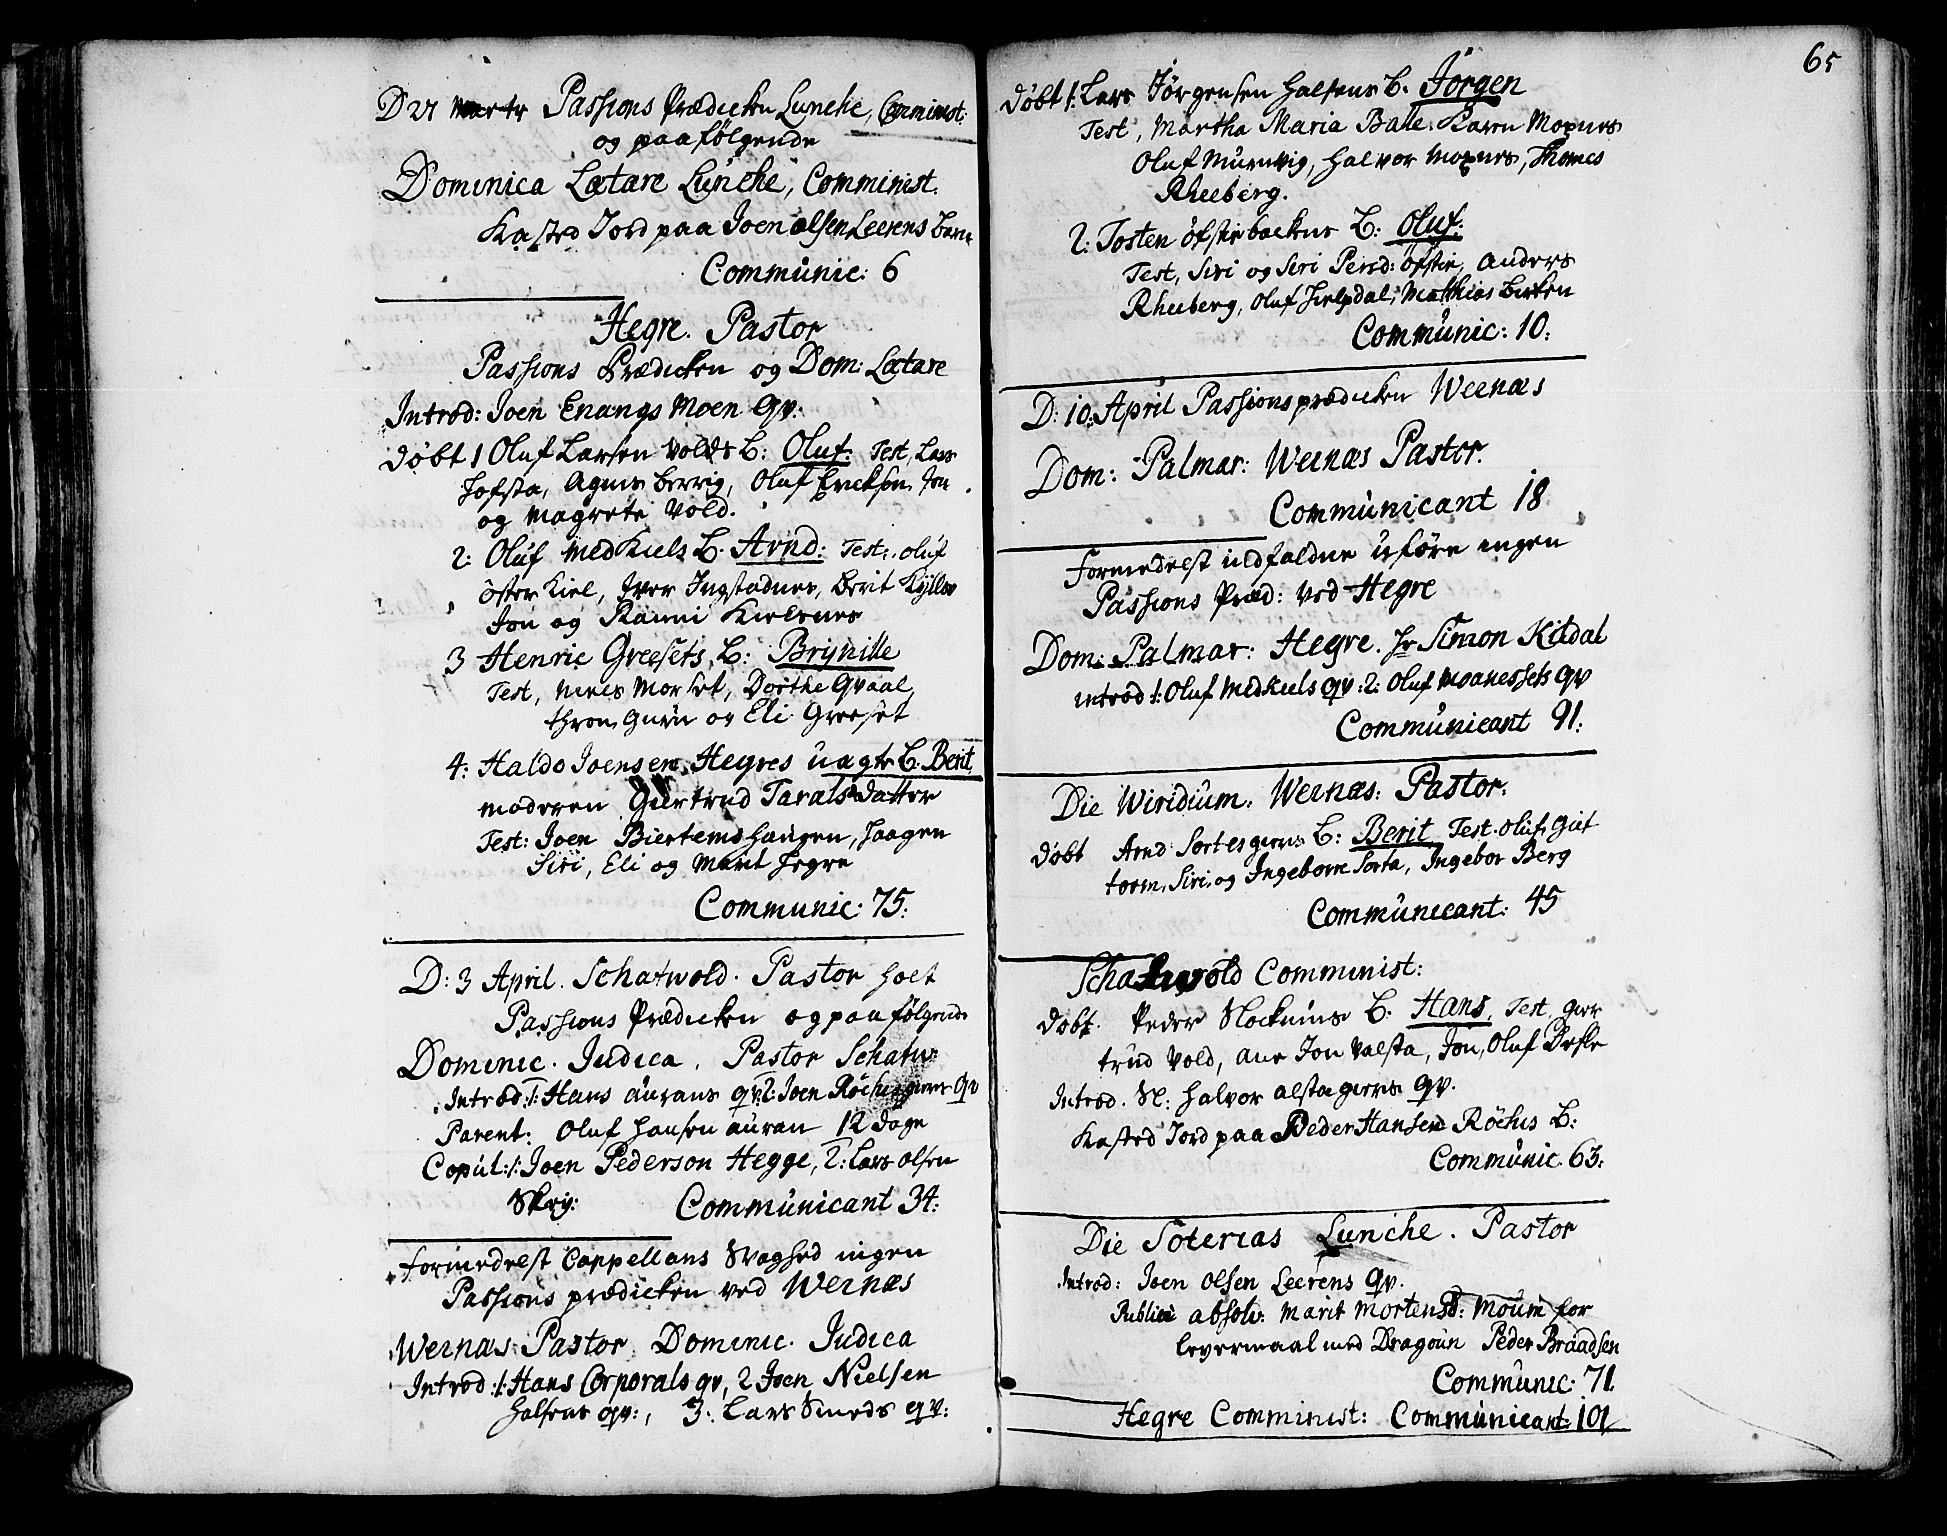 D 27 Martz Passions Prædicken Lunche, Comminist:
og paafølgende
Dominica Lætare Lunche, Comminist.
Kasted Jord paa Joen olsen Leerens Barn
Communic: 6
Hegre. Pastor
Passions Prædicken og Dom: Lætare
Introd: Joen Enangs Moen qv:
døbt 1 Oluf Larsen Volds B: Oluf: Test, Lars
Hofsta, Agnis Berrig, Oluf Ericksen, Jon
og Magrete Vold.
2: Oluf Medkiels B. Arnd: Test: oluf
øster Kiel, Iver Ingstadnes, Berit Kyllo
Jon og Ranni Kielsnes
3 Henric Greesets B: Brynille
Test, Niels Morset, Dorthe Qvaal,
thron, Guru og Eli Greeset
4: Haldo Joensen Hegres uægte B. Berit
moderen Giertrud Taralsdatter
Test: Joen Biertemshaugen, Haagen
Siri, Eli og Marit Hegre
Communic: 75:
D: 3 April. Schatwold. Pastor holt
Passions Prædicken og paafølgende
Dominic. Judica, Pastor Schatw:
Introd: 1: Hans aurans qv: 2: Joen Röehusgierns qv
Parent: Oluf Hansen auran 12 Dage
Copul: 1: Joen Pederson Hegge, 2: Lars olsen
Skry: Communicant 34:
Formedelst Cappellans Svaghed ingen
Passions prædicken ved Wernæs
Wernæs Pastor Dominic. Judica
Introd: 1: Hans Corporals qv, 2 Joen Nielsen
Halsens qv:, 3: Lars Smeds qv:
65
døbt 1: Lars Jørgensen Halsens B. Jörgen
Test, Martha Maria Balle, Karen Moxnes
Oluf Muruvig, Halvor Moxnes, Thomes
Rheeberg.
2: Tosten öfstie backens B: Oluf:
Test, Siri og Siri Persd: öfstie, Anders
Rheeberg, Oluf Hielpdal, Mathias Berken
Communic: 10:
D: 10: April Passions prædicken Wernæs
Dom: Palmar: Wernæs Pastor.
Communicant 18
Formedelst ildfaldne uføre ingen
Passions Præd: ved Hegre
Dom: Palmar: Hegre. Hr Simon Kildal
introd 1: Oluf Medkiels qv: 2: Oluf Moanessets qv
Communicant 91:
Die Wiridium. Wernæs: Pastor.
døbt Arnd Sortesgierns B: Berit Test. oluf, Giert
torm, Siri, og Ingeborre Sorta, Ingebor Berg
Communicant: 45
Schatwold Comminist:
døbt. Peder Stockmos B. Hans, Test, Gier
trud Vold, Ane Jon Valsta, Jon, Oluf Drefle
Introd. Sl: Halvor alstagierns qv.
Kasted Jord paa Peder Hansens Röehus B:
Communic. 63:
Die Soterias Lunche. Pastor
Introd: Joen olsen Leerens qv.
Publice absolv: Marit Mortensd: Moum for
levermaal med Dragoun Peder Braadsen
Communic: 71
Hegre Comminist: Communicant: 101